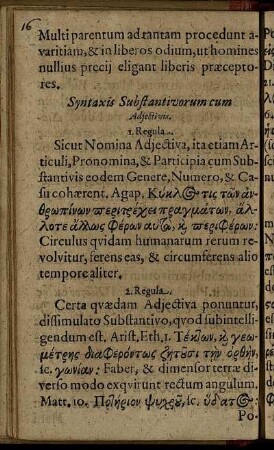 16
Multi parentum ad tantam procedunt a-
varitiam, & in liberos odium, ut homines
nullius precij eligant liberis præcepto-
res.
Syntaxis Substantivorum cum
Adjectivis.
1. Regula.
Sicut Nomina Adjectiva, ita etiam Ar-
ticuli, Pronomina, & Participia cum Sub-
stantivis eodem Genere, Numero, & Ca-
su cohærent. Agap. Κύκλος τις τῶν ἀν-
θρωπίνων περιτρέχει πραγμάτων, ἄλ-
λοτε ἄλλως φέρων αὐτὰ, κ, περιφέρων:
Circulus quidam humanarum rerum re-
volvitur, ferens eas, & circumferens alio
tempore aliter.
2. Regula.
Certa quædam Adjectiva ponuntur,
dissimulato Substantivo, quod subintelli-
gendum est. Arist. Eth. 1. Τέκτων, κ, γεω-
μέτρης διαφερόντως ζητοῦσι τὴν ὀρθὴν,
sc. γωνίαν: Faber, & dimensor terræ di-
verso modo exquirunt rectum angulum.
Matt. 10. Ποτήριον ψυχροῦ, sc. ὕδατος:
Po-